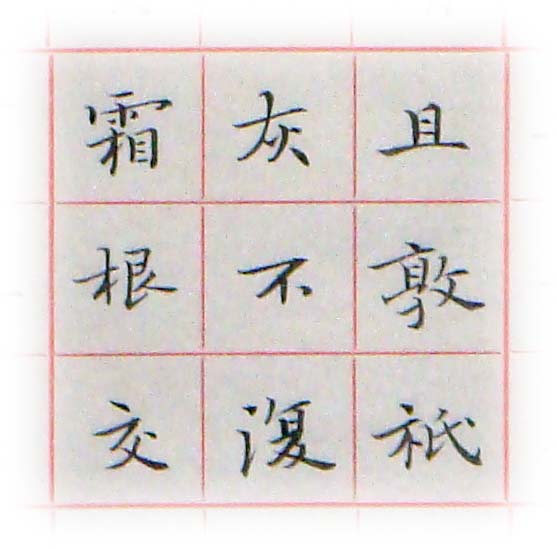 且敦祇
灰不復
霜根交